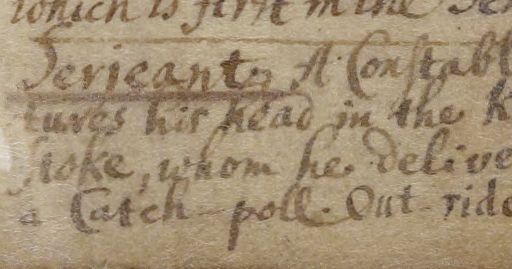 which is first in the
Serjeant, A Constabl
tures his head in the K
stoke, whom he delive
a Catch-poll. Out-ride